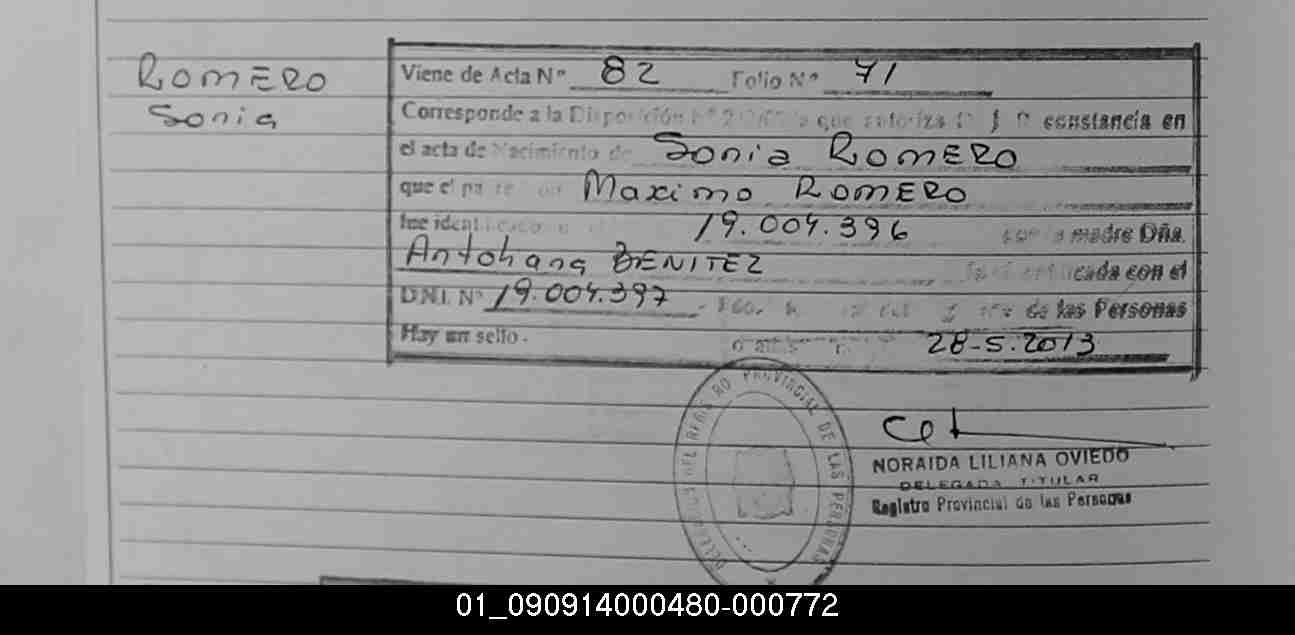 ROMERO
Sonia
Viene de Acta Nº 82 Folio Nº 71
Corresponde a la Disposición que autoriza constancia en
el acta de Nacimiento de Sonia ROMERO
que el Maximo ROMERO
fue 19.004.396 madre Dña.
Antoliana BENITEZ cada con el
D.N.I. Nº 19.004.397 de las Personas
Hay un sello. 28-5.2013
DELEGACION DEL REGISTRO PROVINCIAL DE LAS PERSONAS
NORAIDA LILIANA OVIEDO
DELEGADA TITULAR
Registro Provincial de las Personas
01_090914000480-000772